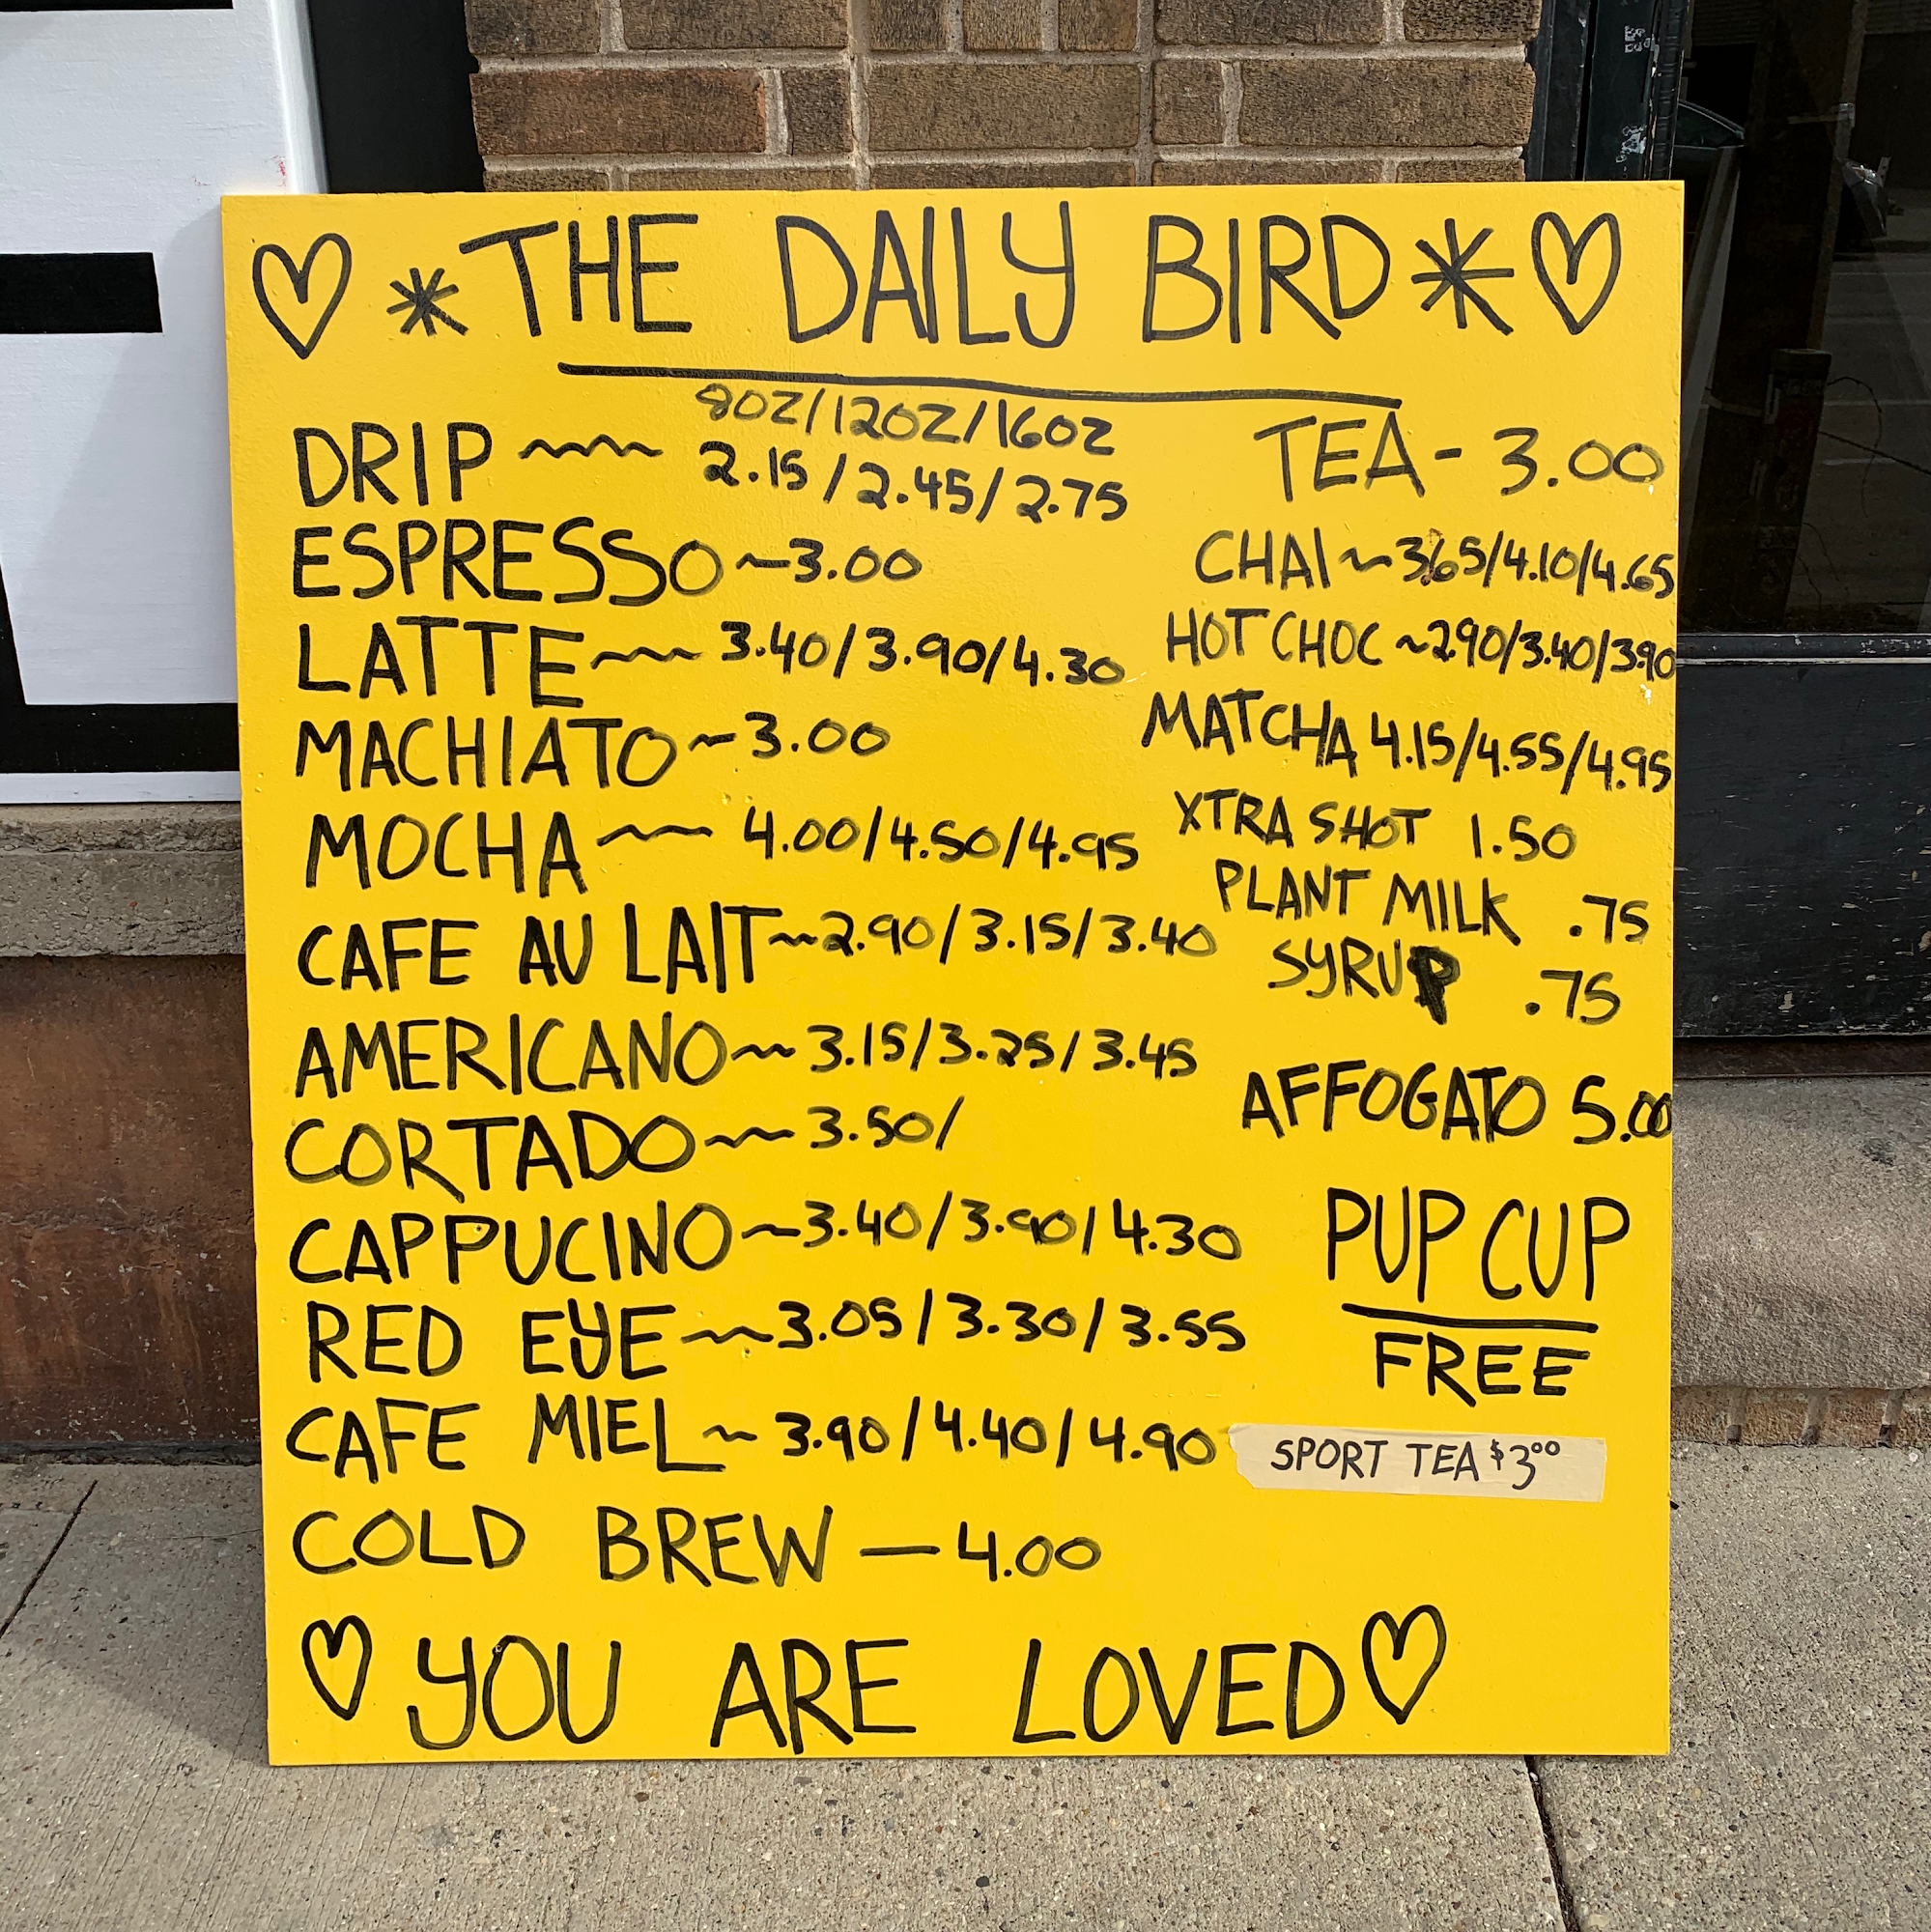 THE DAILY BIRD
8OZ/12OZ/16OZ
DRIP 2.15/2.45/2.75
ESPRESSO~3.00
LATTE~3.40/3.90/4.30
MACHIATO~3.00
MOCHA~4.00/4.50/4.95
CAFE AU LAIT~2.90/3.15/3.40
AMERICANO~3.15/3.25/3.45
CORTADO~3.50/
CAPPUCINO~3.40/3.90/4.30
RED EYE~3.05/3.30/3.55
CAFE MIEL~3.90/4.40/4.90
COLD BREW—4.00
TEA-3.00
CHAI~3.65/4.10/4.65
HOT CHOC~2.90/3.40/3.90
MATCHA 4.15/4.55/4.95
XTRA SHOT 1.50
PLANT MILK .75
SYRUP .75
AFFOGATO 5.00
PUP CUP
FREE
SPORT TEA $3.00
YOU ARE LOVED